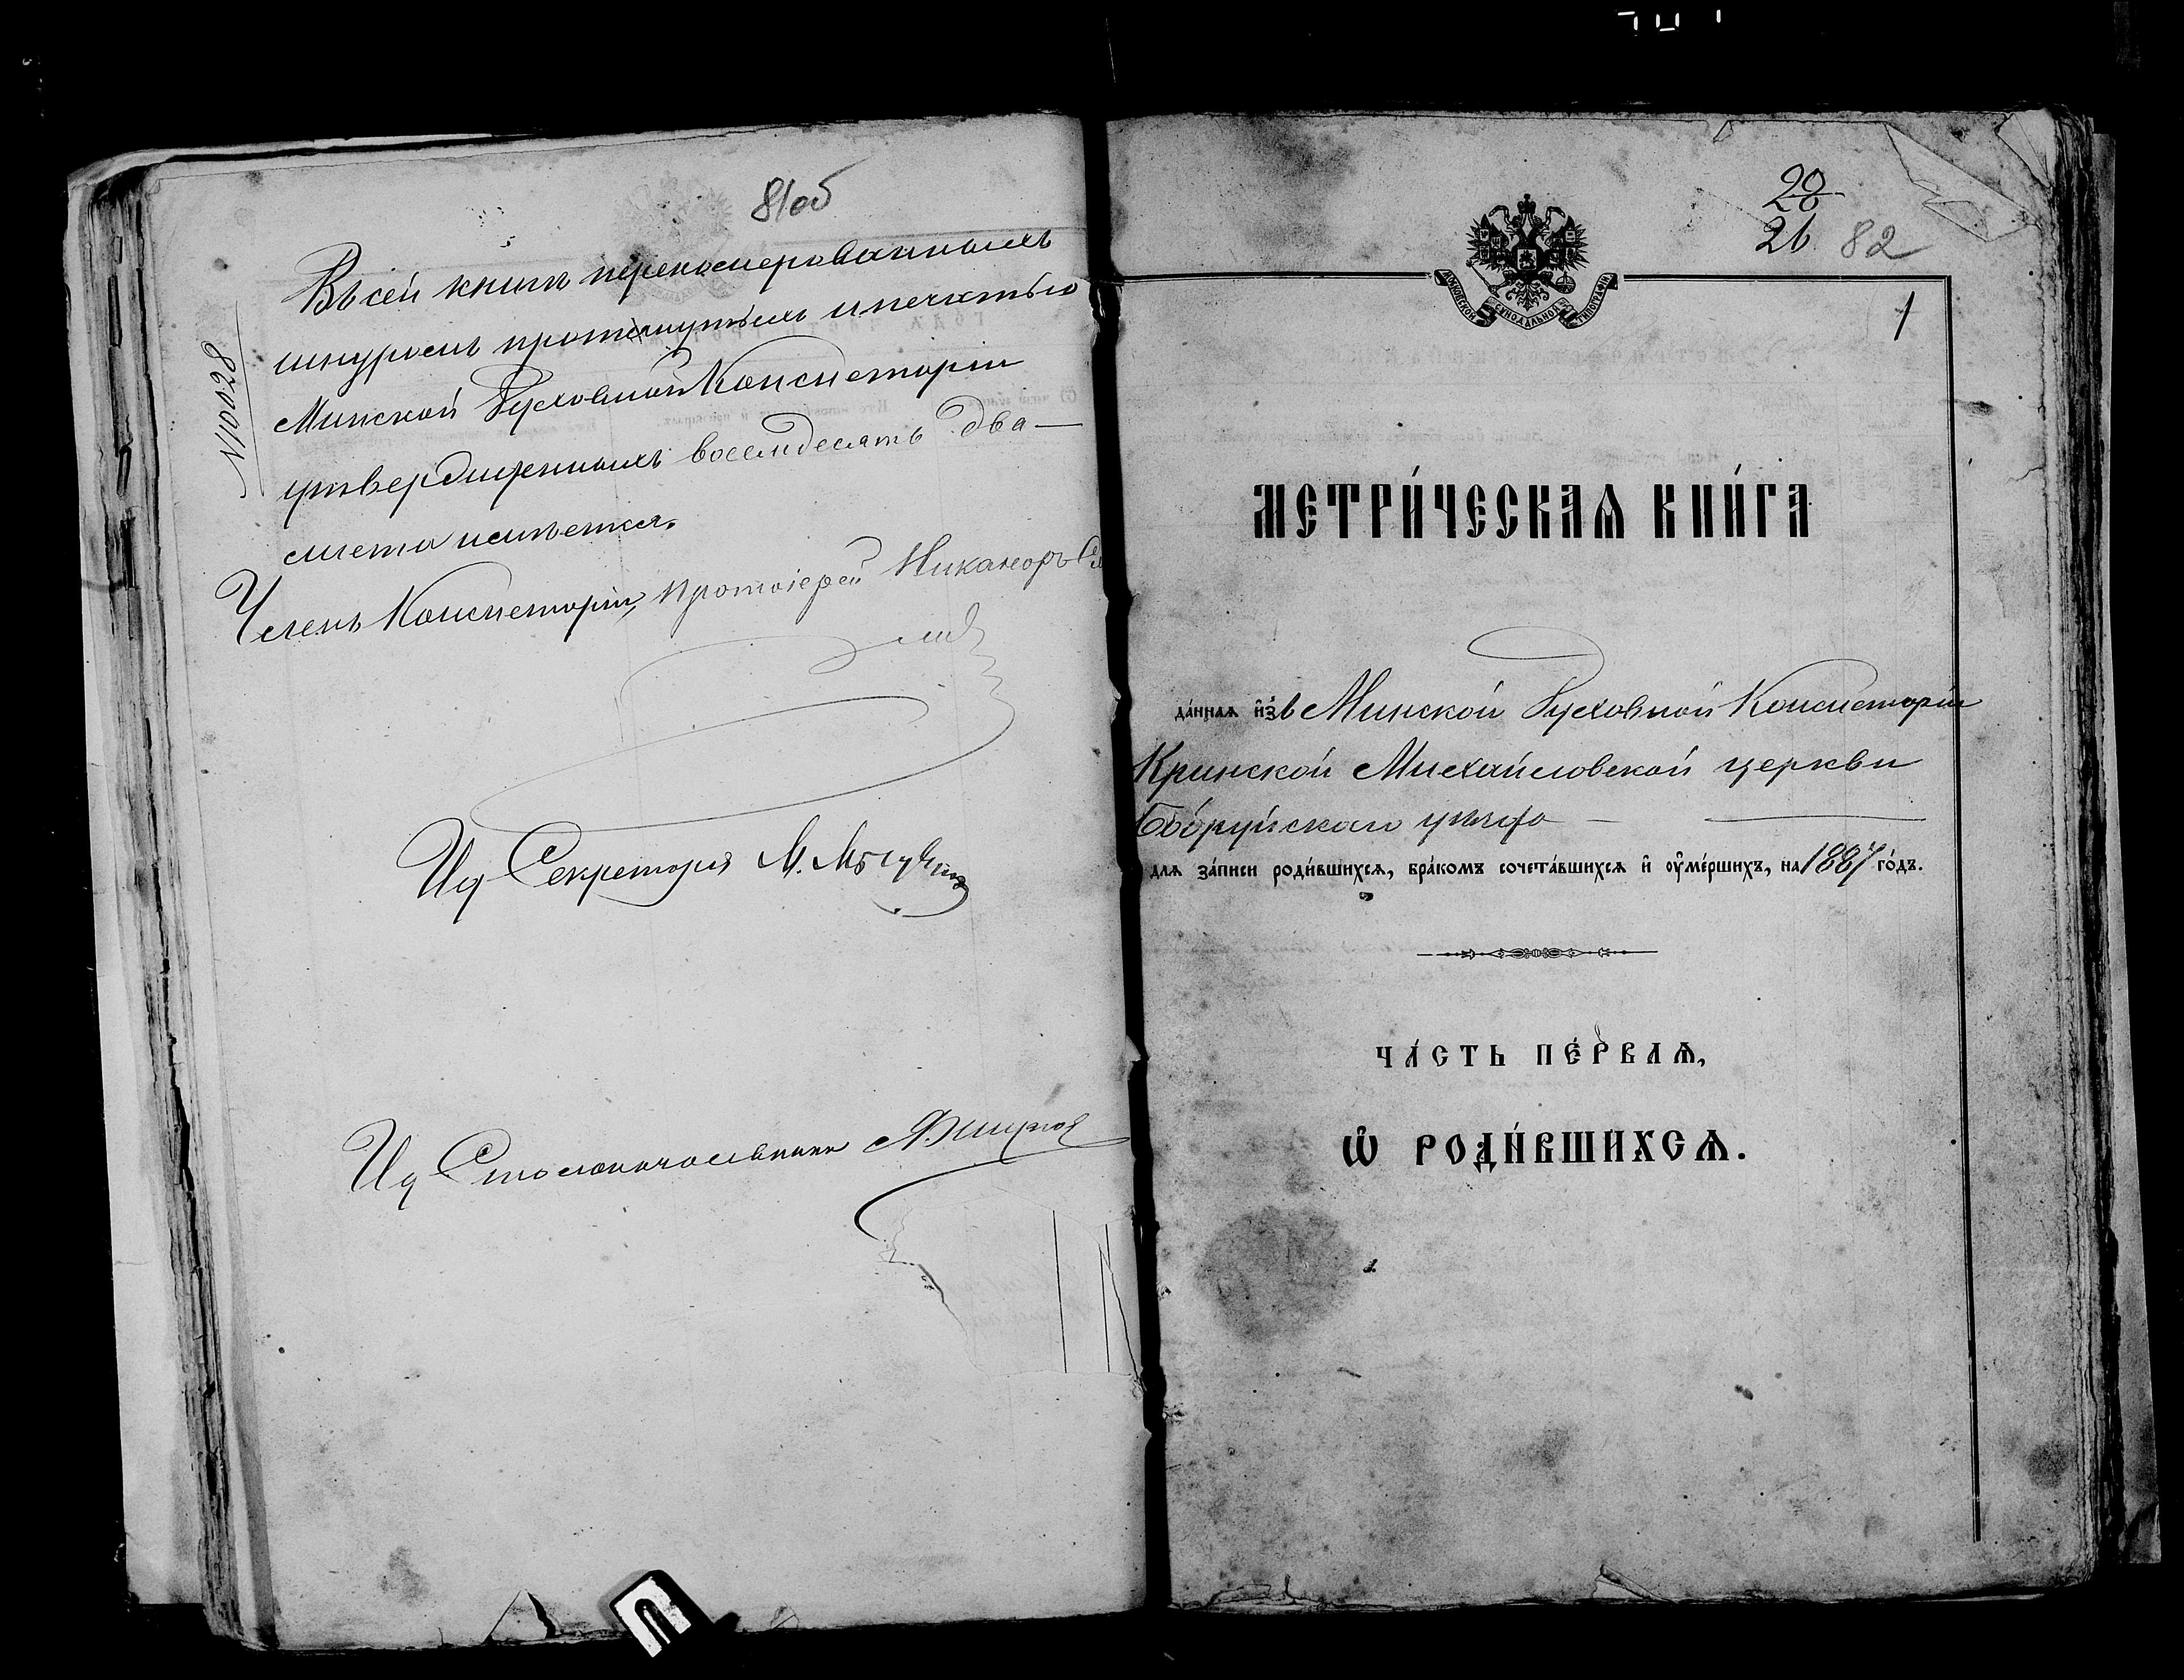 81об
№10028
Въ сей книгѣ перенумерованныхъ
шнуромъ протянутыхъ и печатью
Минской Духовной Консисторіи
утвержденныхъ восемдесятъ два —
листа имѣется.
Членъ Консисторіи, Протоіерей Никаноръ
Ид Секретаря М.
Ид Столоначальника
20
26 82
1
МОСКОВСКОЙ СѴНОДАЛЬНОЙ ТИПОГРАФІИ
МЕТРИ́ЧЕСКАѦ КНИ́ГА
да́ннаѧ и҆зъ Минской Духовной Консисторіи
Кринской Михайловской церкви
Бобруйскаго уѣзда —
длѧ за́писи роди́вшихсѧ, бра́комъ сочета́вшихсѧ и҆ ᲂу҆ме́ршихъ, на 1887 го́дъ.
ЧА́СТЬ ПЕ́РВАѦ,
Ѽ РОДИ́ВШИХСѦ.